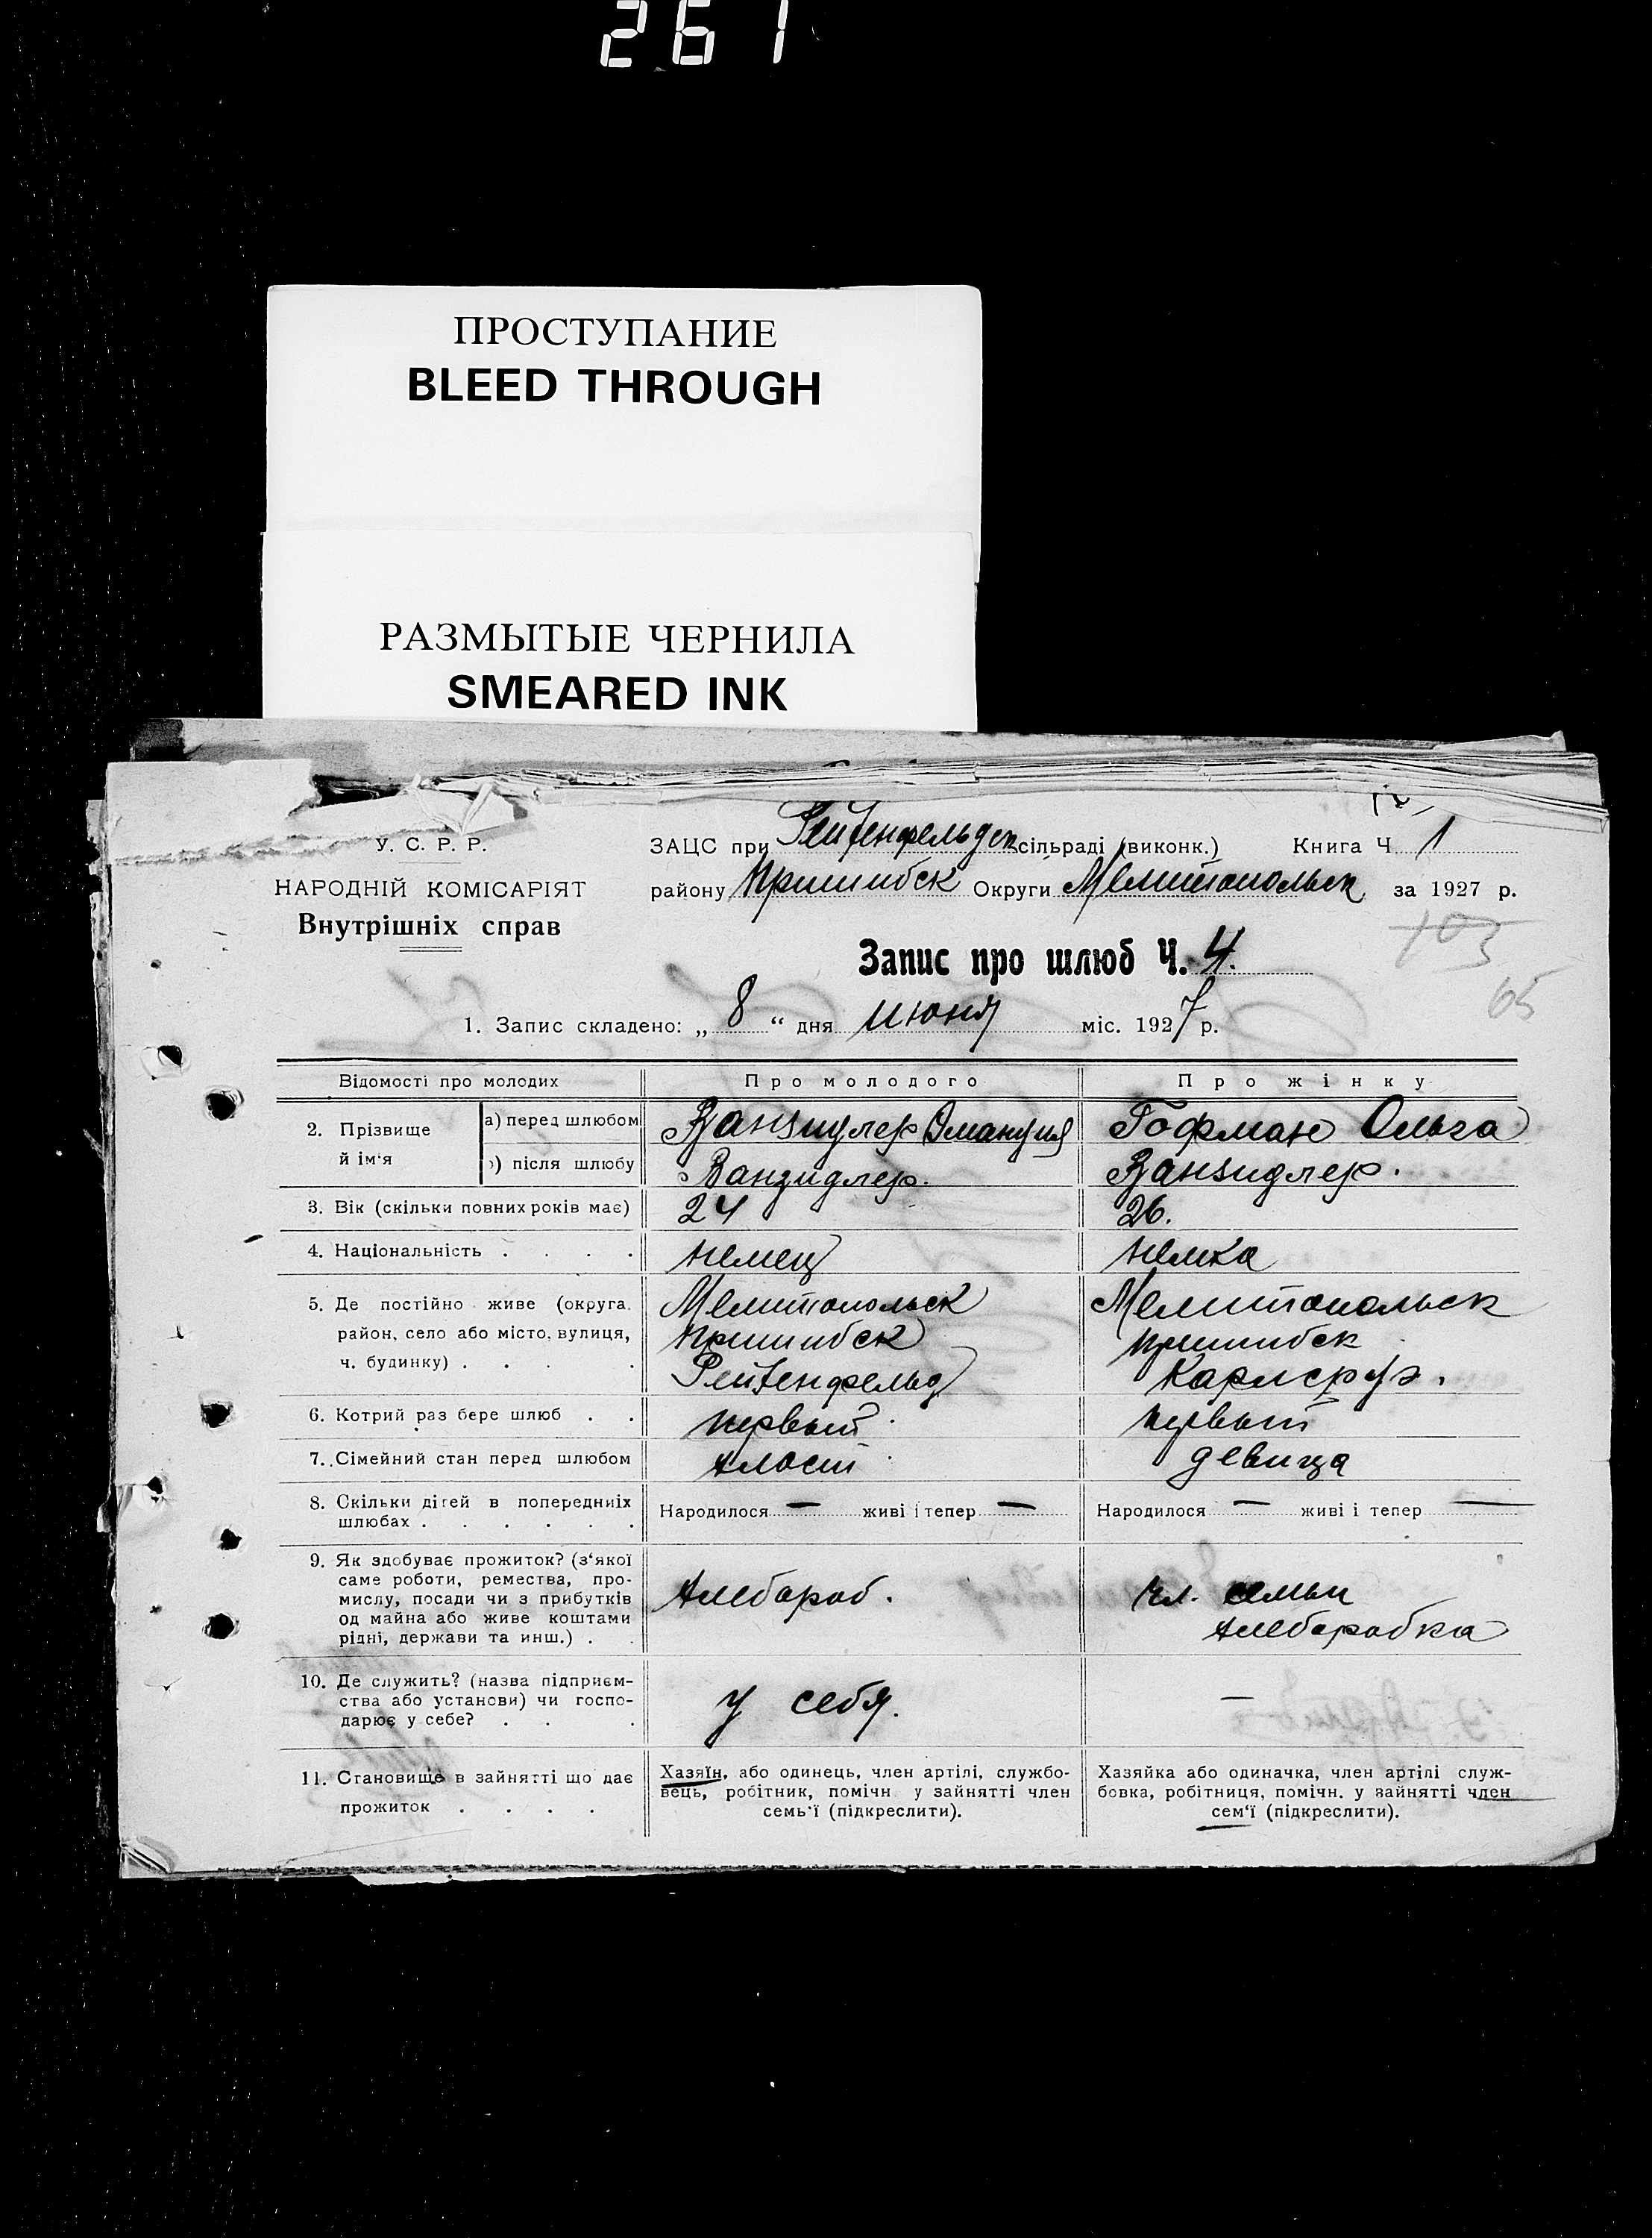 261
ПРОСТУПАНИЕ
BLEED THROUGH
РАЗМЫТЫЕ ЧЕРНИЛА
SMEARED INK
У. С. Р. Р.
НАРОДНІЙ КОМІСАРІЯТ
Внутрішніх справ
ЗАЦС при Рейхенфельдск сільраді (виконк.) Книга Ч. 1
району Пришибск Округи Мелитопольск за 1927 р.
103
65
Запис про шлюб Ч. 4.
1. Запис складено: „ 8 “ дня июня міс. 1927 р.
Відомості про молодих Про молодого Про жінку
2. Прізвище й ім'я а) перед шлюбом Ванзидлер Гофман Ольга
б) після шлюбу Ванзидлер. Ванзидлер.
3. Вік (скільки повних років має) 24 26.
4. Національність . . . . немец немка
5. Де постійно живе (округа, Мелитопольск Мелитопольск
район, село або місто, вулиця, Пришибск Пришибск
ч. будинку) . . . . Рейхенфельд Карлсруэ.
6. Котрий раз бере шлюб . . первый первый
7. Сімейний стан перед шлюбом холост девица
8. Скільки дітей в попередніх Народилося — живі і тепер — Народилося — живі і тепер —
шлюбах . . . . . .
9. Як здобуває прожиток? (з'якої
саме роботи, ремества, про-
мислу, посади чи з прибутків хлебороб. чл. семьи
од майна або живе коштами хлеборобка
рідні, держави та инш.) . .
10. Де служить? (назва підприєм-
ства або установи) чи госпо- у себя. —
дарює у себе? . . .
11. Становище в зайнятті що дає
прожиток . . . .
Хазяїн, або одинець, член артілі, службо-
вець, робітник, помічн. у зайнятті член
семь'ї (підкреслити).
Хазяйка або одиначка, член артілі служ-
бовка, робітниця, помічн. у зайнятті член
сем'ї (підкреслити).